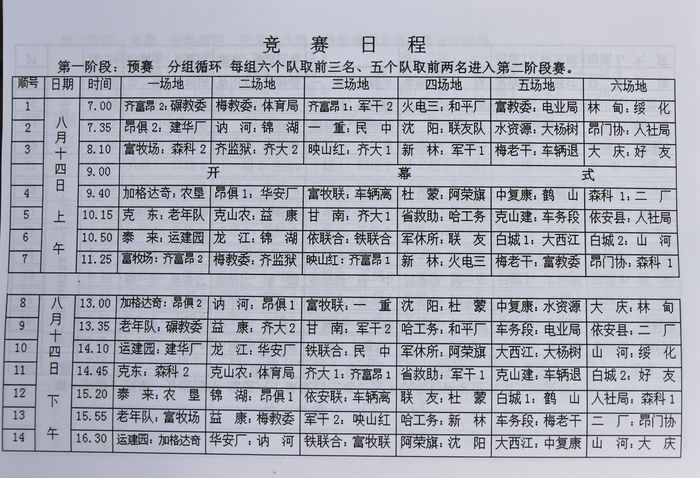 竞赛日程
第一阶段：预赛 分组循环 每组六个队取前三名、五个队取前两名进入第二阶段赛。
顺号 日期 时间 一场地 二场地 三场地 四场地 五场地 六场地
八月十四日上午
1 7.00 齐富昂2：碾教委 梅教委：体育局 齐富昂1：军干2 火电三：和平厂 富教委：电业局 林甸：绥化
2 7.35 昂俱2：建华厂 讷河：锦湖 一重：民中 沈阳：联友队 水资源：大杨树 昂门协：人社局
3 8.10 富牧场：森科2 齐监狱：齐大2 映山红：齐大1 新林：军干1 梅老干：车辆退 大庆：好友
9.00 开幕式
4 9.40 加格达奇：农垦 昂俱1：华安厂 富牧联：车辆离 杜蒙：阿荣旗 中复康：鹤山 森科1：二厂
5 10.15 克东：老年队 克山农：益康 甘南：齐大1 省救助：哈工务 克山建：车务段 依安县：人社局
6 10.50 泰来：运建园 龙江：锦湖 依联合：铁联合 军休所：联友 白城1：大西江 白城2：山河
7 11.25 富牧场：齐富昂2 梅教委：齐监狱 映山红：齐富昂1 新林：火电三 梅老干：富教委 昂门协：森科1
八月十四日下午
8 13.00 加格达奇：昂俱2 讷河：昂俱1 富牧联：一重 沈阳：杜蒙 中复康：水资源 大庆：林甸
9 13.35 老年队：碾教委 益康：齐大2 甘南：军干2 哈工务：和平厂 车务段：电业局 依安县：二厂
10 14.10 运建园：建华厂 龙江：华安厂 铁联合：民中 军休所：阿荣旗 大西江：大杨树 山河：绥化
11 14.45 克东：森科2 克山农：体育局 齐大1：齐富昂1 省救助：军干1 克山建：车辆退 白城2：好友
12 15.20 泰来：农垦 锦湖：昂俱1 依安联：车辆离 联友：杜蒙 白城1：鹤山 人社局：森科1
13 15.55 老年队：富牧场 益康：梅教委 军干2：映山红 哈工务：新林 车务段：梅老干 二厂：昂门协
14 16.30 运建园：加格达奇 华安厂：讷河 铁联合：富牧联 阿荣旗：沈阳 大西江：中复康 山河：大庆